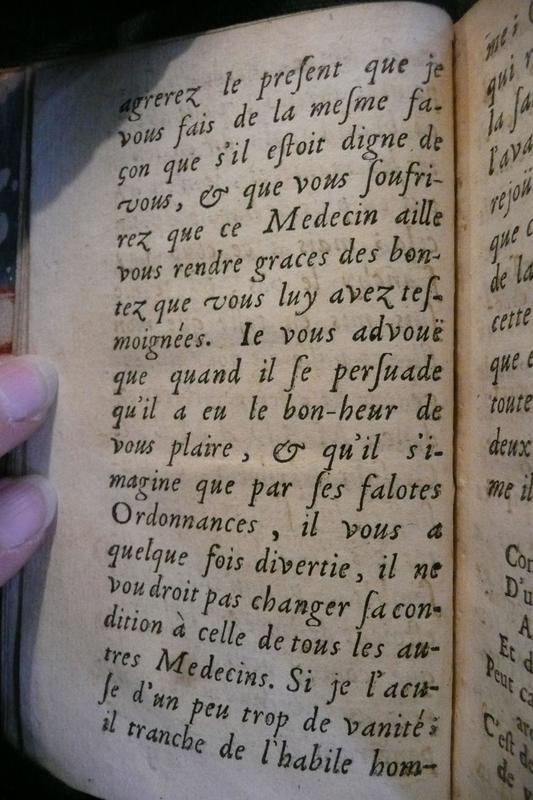 agrerez le preſent que je
vous fais de la meſme fa-
çon que s'il eſtoit digne de
vous, & que vous ſoufri-
rez que ce Medecin aille
vous rendre graces des bon-
tez que vous luy avez teſ-
moignées. Ie vous advouë
que quand il ſe perſuade
qu'il a eu le bon-heur de
vous plaire, & qu'il s'i-
magine que par ſes falotes
Ordonnances, il vous a
quelque fois divertie, il ne
voudroit pas changer ſa con-
dition à celle de tous les au-
tres Medecins. Si je l'acu-
ſe d'un peu trop de vanité;
il tranche de l'habile hom-
me:
qui
la
que
de la
cette
que
toute
deux
me il
D'u
A
Et d
Peut
C'eſt de
de